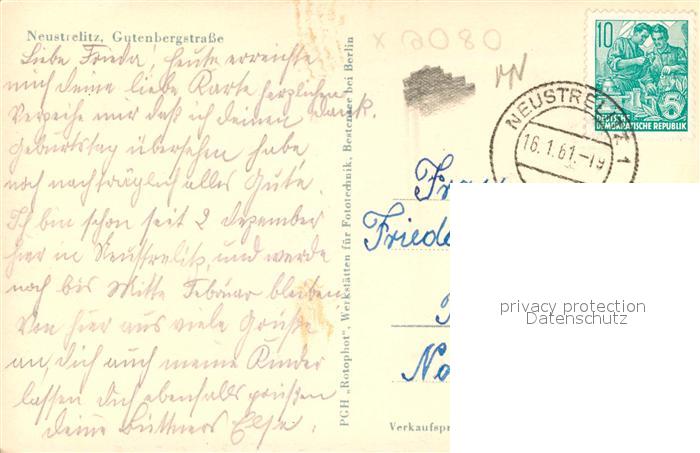 Neustrelitz, Gutenbergstraße
Liebe Frieda, heute erreichte
mich deine liebe Karte herzlichen
Dank.
Verzeihe mir daß ich deinen
Geburtstag übersehen habe,
noch nachträglich alles Gute.
Ich bin schon seit 2 Dezember
hier in Neustrelitz, und werde
noch bis Mitte Februar bleiben
Von hier aus viele Grüße
an, dich auch meine Kinder
lassen dich ebenfalls grüßen
deine Büttners Else.
PGH „Rotophot", Werkstätten für Fototechnik, Bestensee bei Berlin
x 2080
10
DEUTSCHE
DEMOKRATISCHE REPUBLIK
5
NEUSTRELITZ 1
16.1.61.-19
Frau
Friede
No
Verkaufspr
privacy protection
Datenschutz